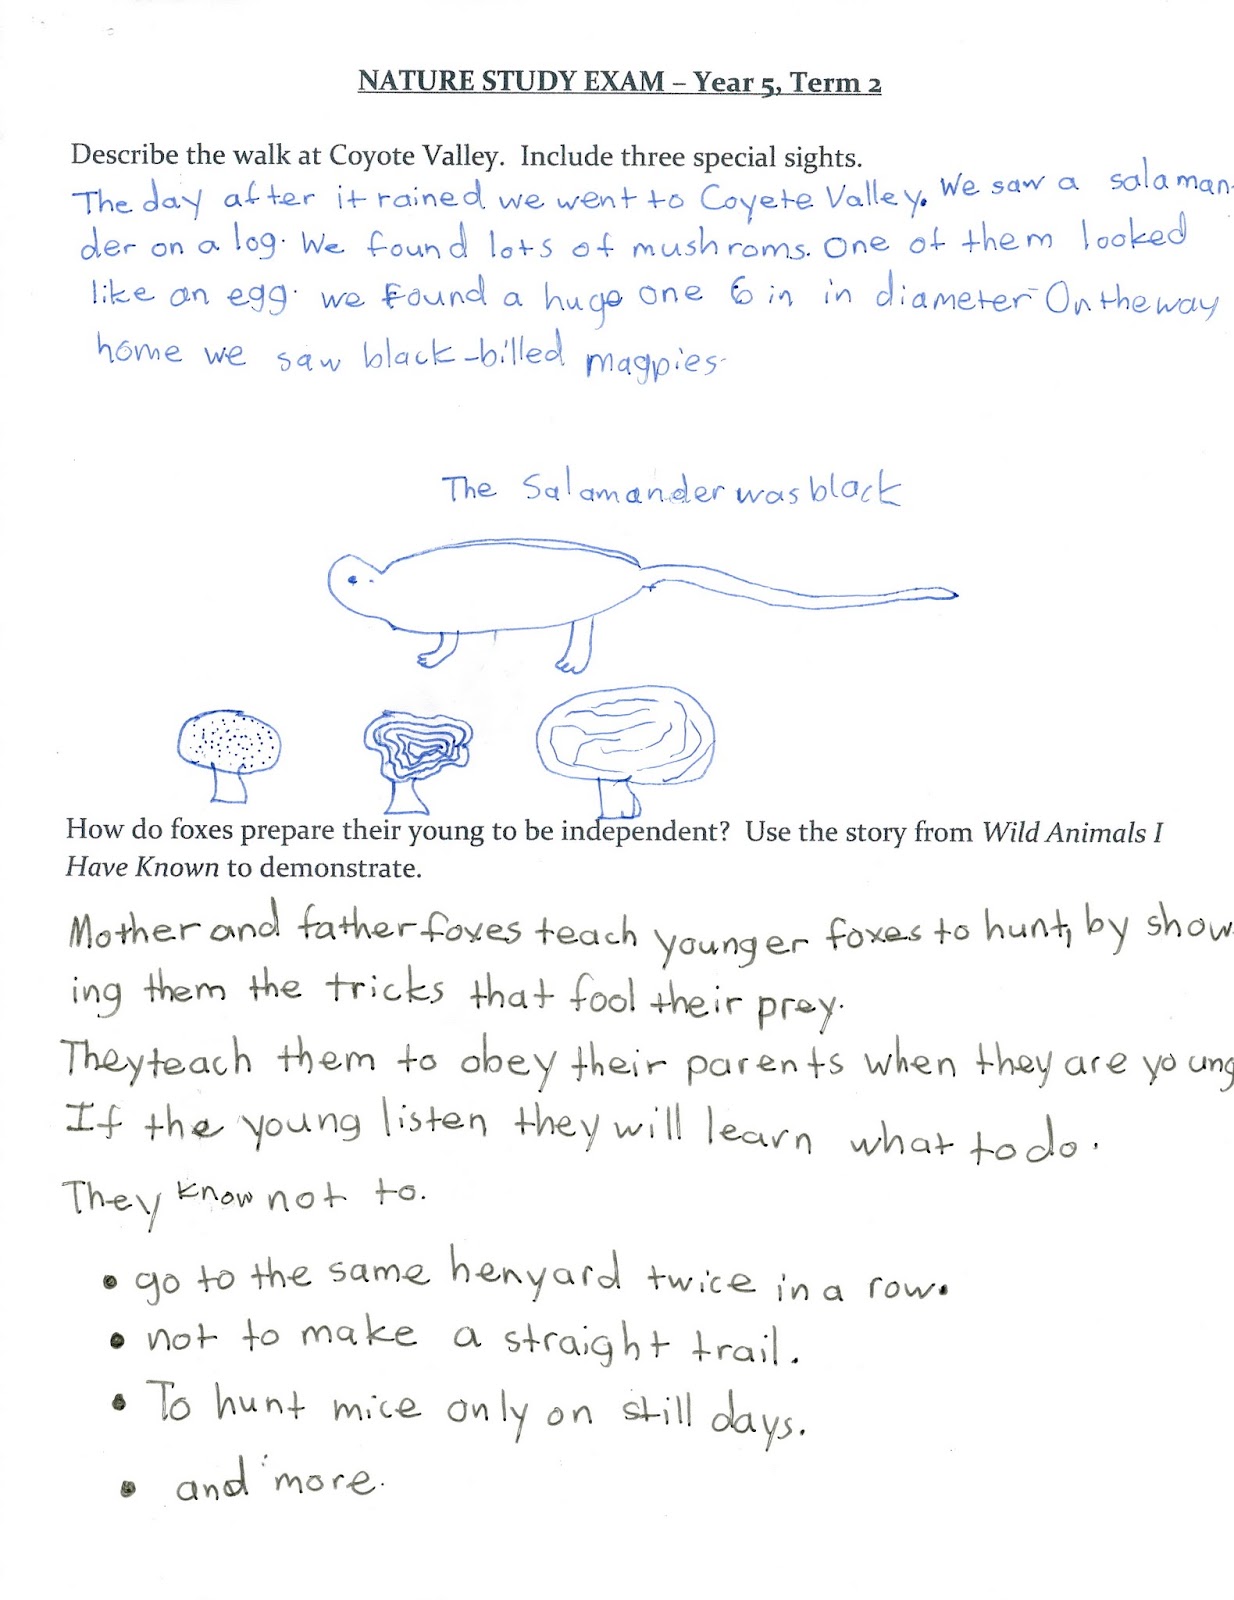 NATURE STUDY EXAM – Year 5, Term 2
Describe the walk at Coyote Valley.  Include three special sights.
The day after it rained we went to Coyete Valley. We saw a salaman-
der on a log. We found lots of mushroms. One of them looked
like an egg. we found a huge one 6 in in diameter On the way
home we saw black-billed magpies.
The Salamander was black
How do foxes prepare their young to be independent?  Use the story from Wild Animals I
Have Known to demonstrate.
Mother and father foxes teach younger foxes to hunt, by show-
ing them the tricks that fool their prey.
They teach them to obey their parents when they are young
If the young listen they will learn what to do.
They know not to.
• go to the same henyard twice in a row.
• not to make a straight trail.
• To hunt mice only on still days.
• and more.